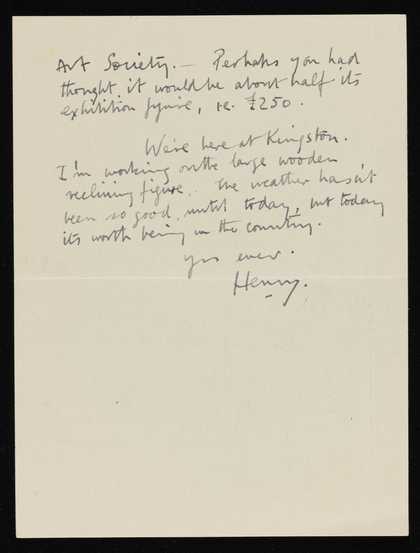 Art Society. — Perhaps you had
thought it would be about half its
exhibition figure, i.e. £250.
We're here at Kingston.
I'm working on the large wooden
reclining figure. The weather hasn't
been so good, until today, but today
its worth being in the country.
yrs ever.
Henry.